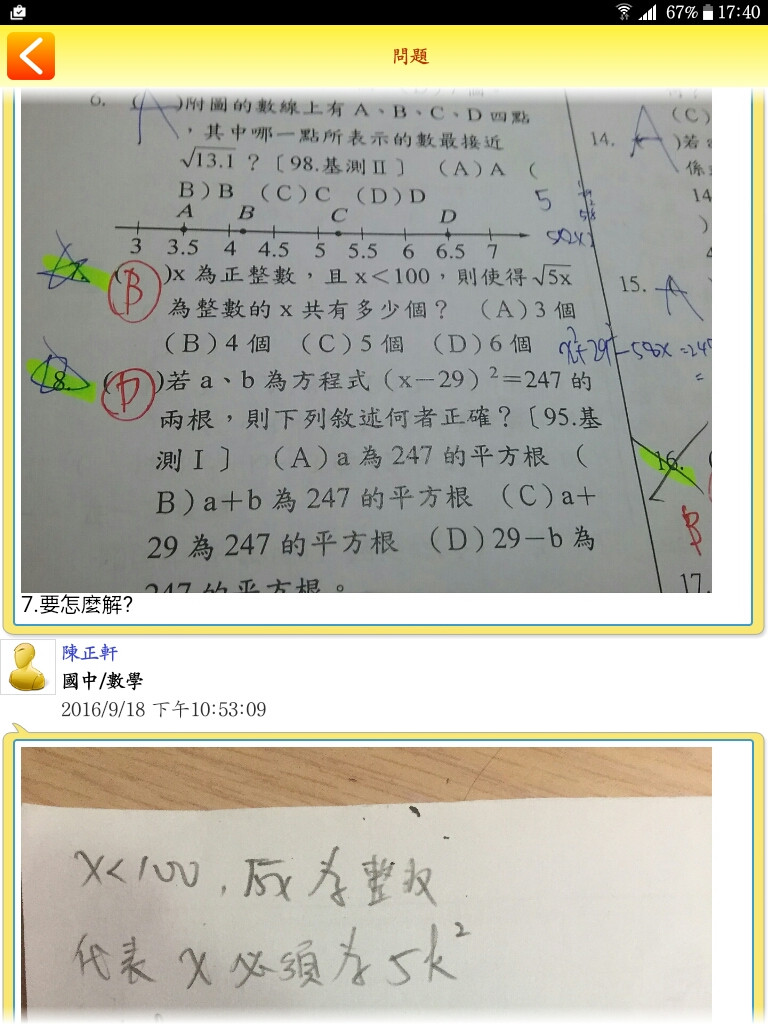 67% 17:40
問題
6. (A)附圖的數線上有 A、B、C、D 四點
，其中哪一點所表示的數最接近
√13.1 ？〔98.基測Ⅱ〕 (A)A (
B)B (C)C (D)D
A B C D
3 3.5 4 4.5 5 5.5 6 6.5 7
(B)x 為正整數，且 x＜100，則使得√5x
為整數的 x 共有多少個？ (A)3 個
(B)4 個 (C)5 個 (D)6 個
8. (D)若 a、b 為方程式 (x－29)²＝247 的
兩根，則下列敘述何者正確？〔95.基
測Ⅰ〕 (A)a 為 247 的平方根 (
B)a＋b 為 247 的平方根 (C)a＋
29 為 247 的平方根 (D)29－b 為
247 的平方根。
5
(C)
14. A )若
係
14
)
15. A
16.
B
17.
7.要怎麼解?
陳正軒
國中/數學
2016/9/18 下午10:53:09
x<100, √5x 為整數
代表 x 必須為 5k²